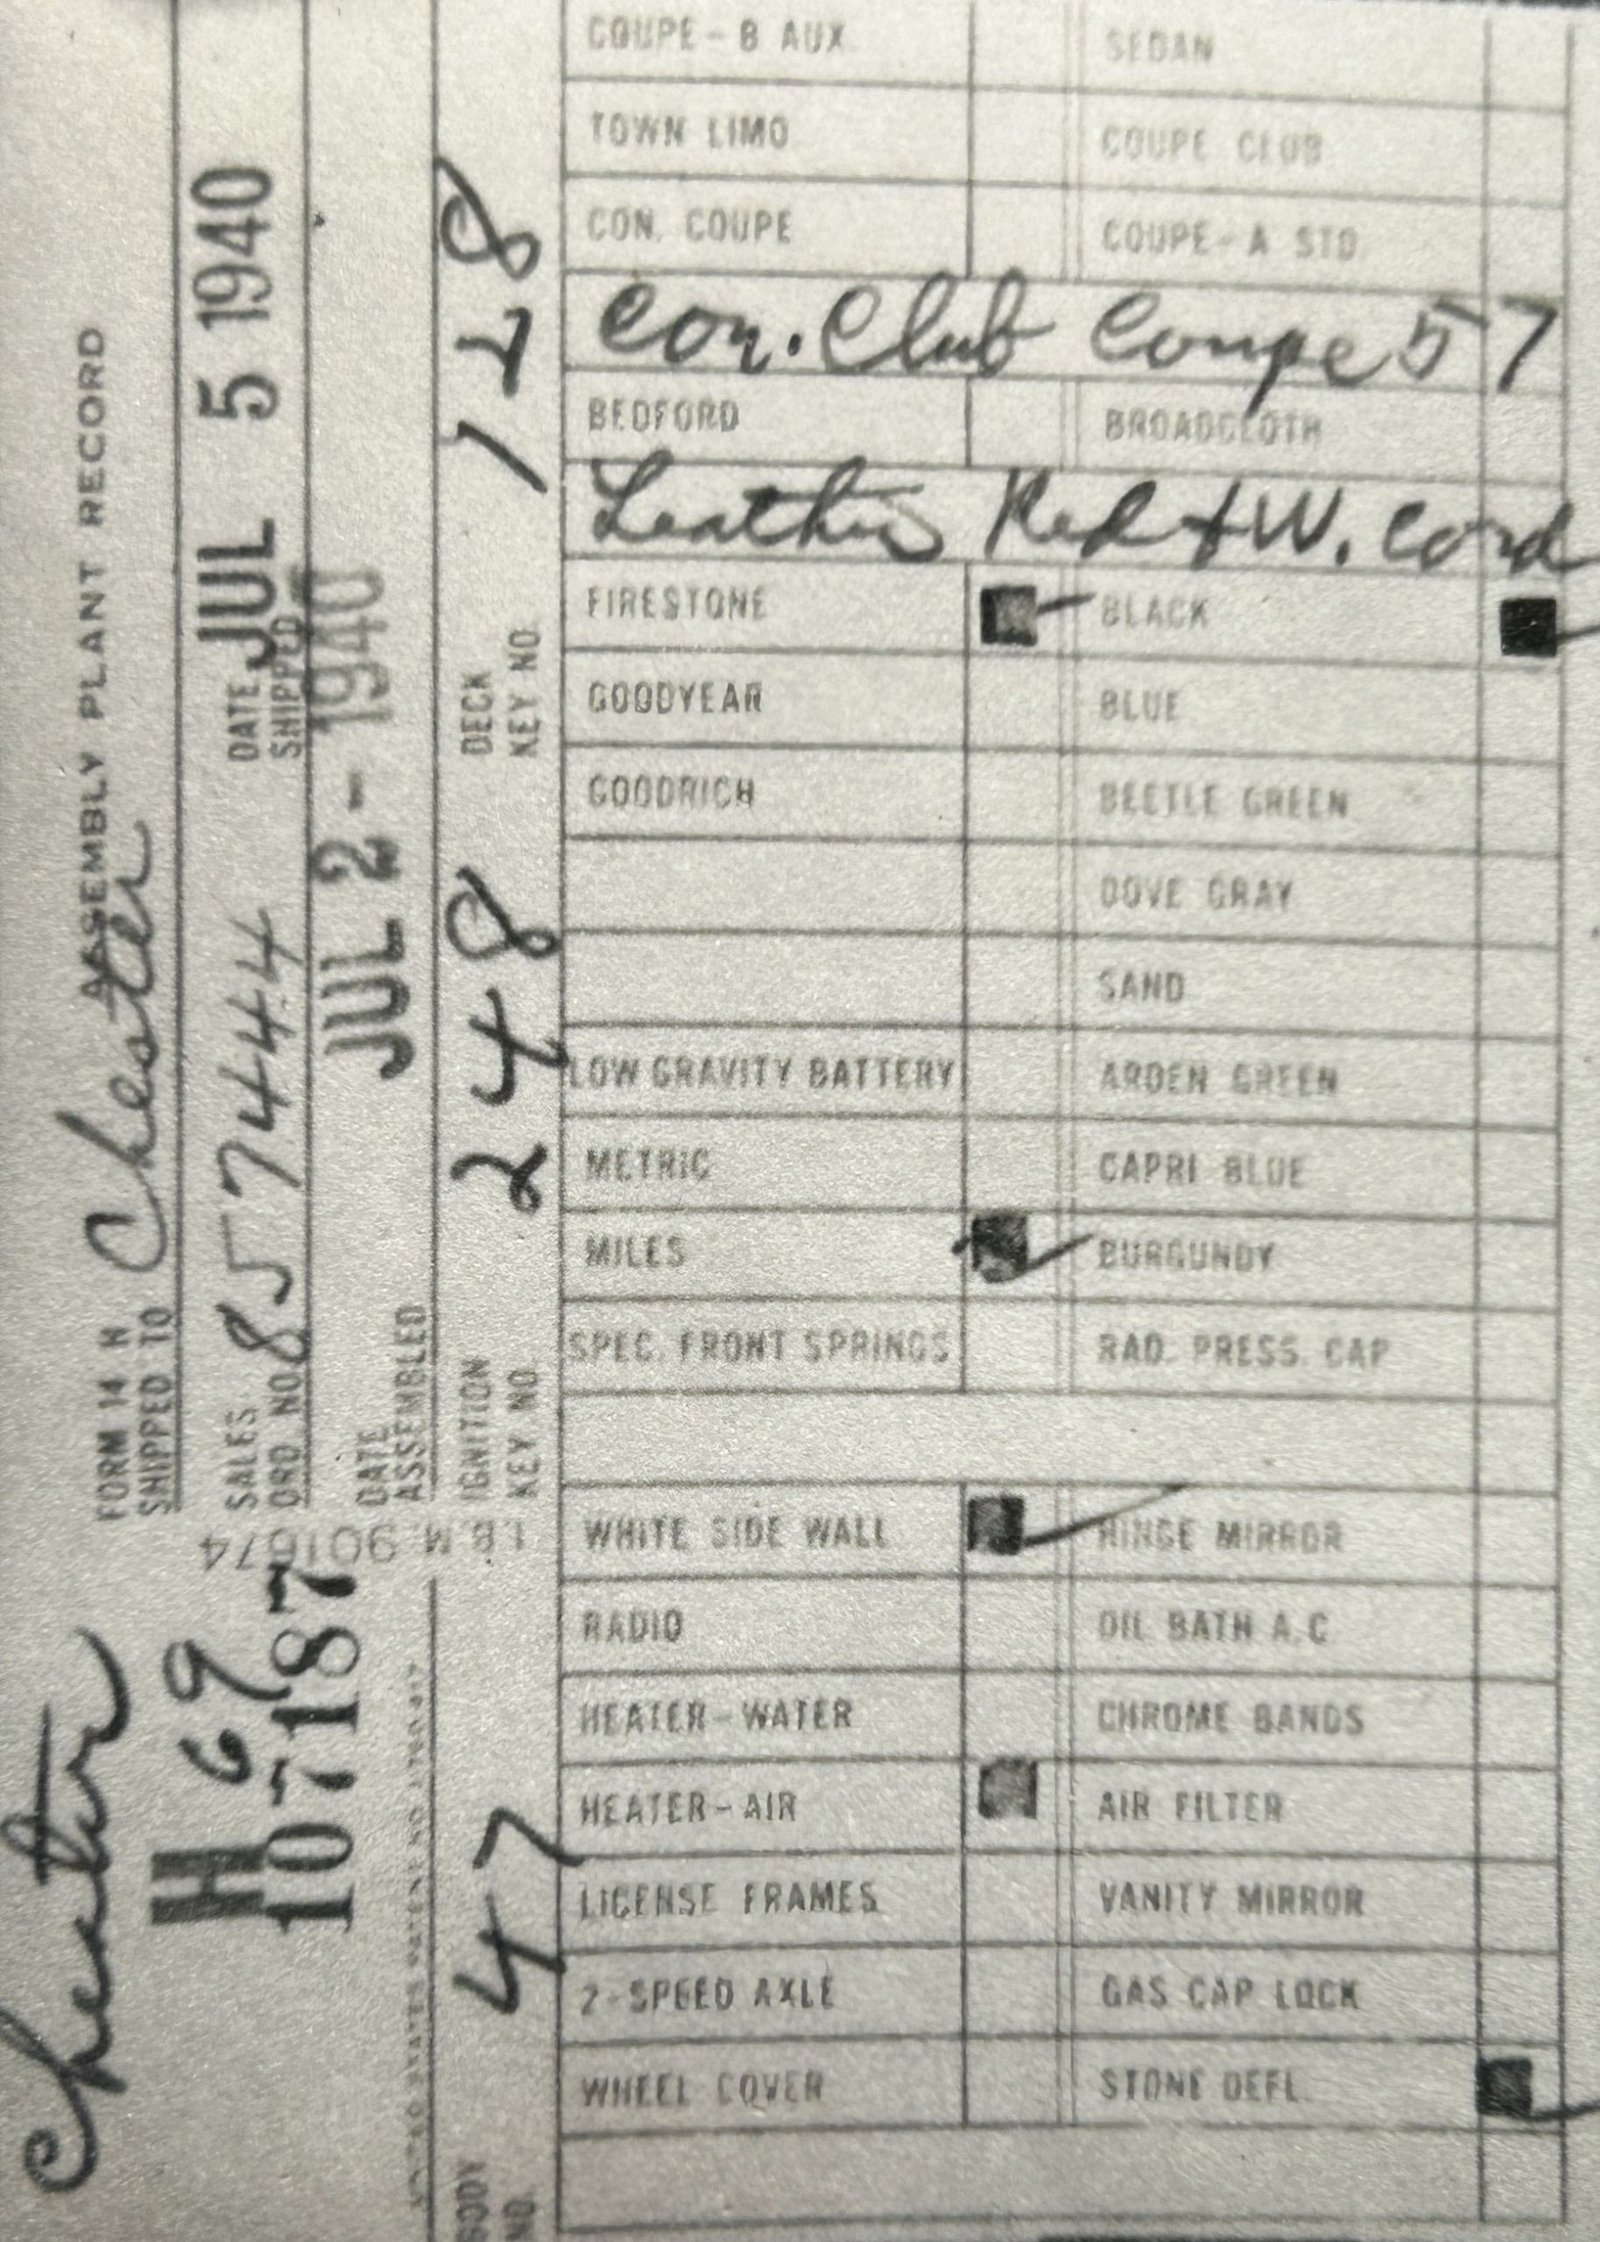 Chester
H 69
107187
FORM 14 H
SHIPPED TO Chester
ASSEMBLY PLANT RECORD
SALES
ORD NO. 857444
DATE
SHIPPED JUL 5 1940
DATE
ASSEMBLED JUL 2 - 1940
I.B.M. 901674
BODY
NO. 47
IGNITION
KEY NO. 248
DECK
KEY NO. 128
COUPE - B AUX. SEDAN
TOWN LIMO COUPE CLUB
CON. COUPE COUPE - A STD.
Con. Club Coupe 57
BEDFORD BROADCLOTH
Leather Red & W. Cord
FIRESTONE BLACK
GOODYEAR BLUE
GOODRICH BEETLE GREEN
DOVE GRAY
SAND
LOW GRAVITY BATTERY ARDEN GREEN
METRIC CAPRI BLUE
MILES BURGUNDY
SPEC. FRONT SPRINGS RAD. PRESS. CAP
WHITE SIDE WALL HINGE MIRROR
RADIO OIL BATH A.C.
HEATER - WATER CHROME BANDS
HEATER - AIR AIR FILTER
LICENSE FRAMES VANITY MIRROR
2-SPEED AXLE GAS CAP LOCK
WHEEL COVER STONE DEFL.